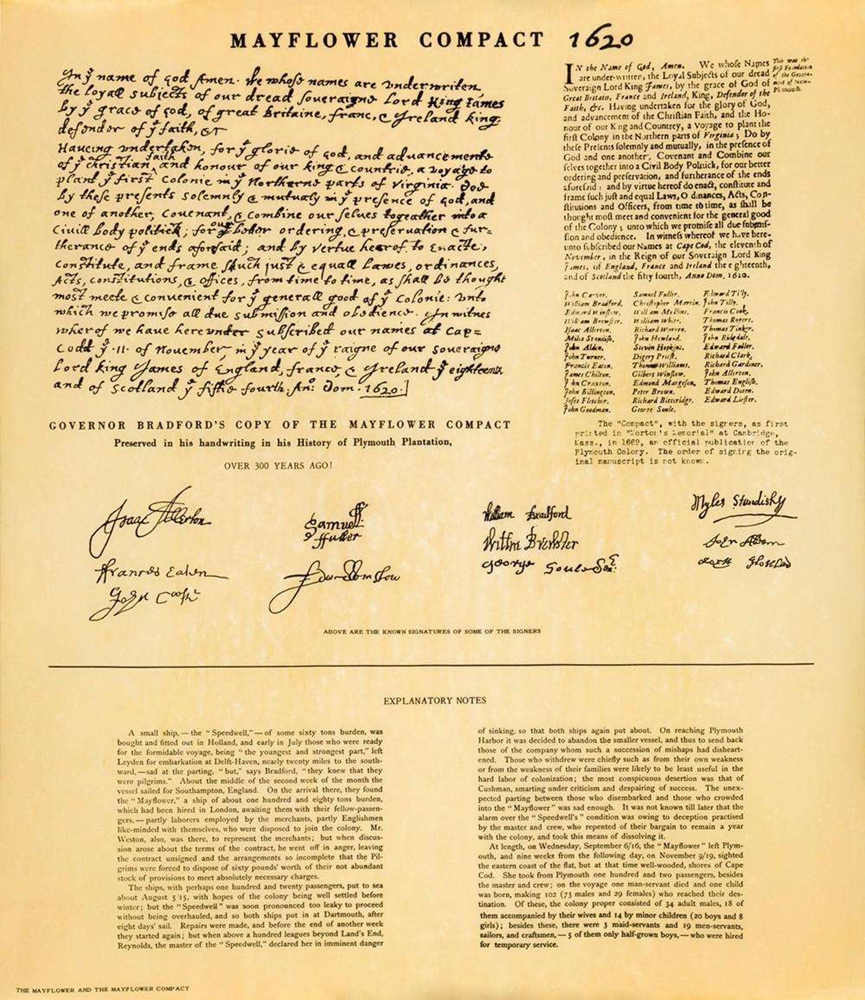 MAYFLOWER COMPACT 1620
In ẙ name of god Amen. We whose names are underwriten,
the loyall subjects of our dread soveraigne Lord King James
by ẙ grace of god, of great Britaine, franc, & Ireland king,
defendor of ẙ faith, &c
Haveing undertaken, for ẙ glorie of god, and advancemente
of ẙ christian faith, and honour of our king & countrie, a voyage to
plant ẙ first colonie in ẙ Northerne parts of Virginia. Doe
by these presents solemnly & mutualy in ẙ presence of god, and
one of another, covenant, & combine our selves togeather into a
Civill body politick; for ẙ better ordering, & preservation & fur=
therance of ẙ ends aforesaid; and by vertue hearof to enacte,
constitute, and frame shuch just & equall Lawes, ordinances,
Acts, constitutions, & offices, from time to time, as shall be thought
most meete & convenient for ẙ generall good of ẙ colonie: unto
which we promise all due submission and obedience. In witnes
wherof we have hereunder subscribed our names at Cap=
Codd ẙ .11. of November in ẙ year of ẙ raigne of our soveraigne
Lord king James of England, france & Ireland ẙ eighteenth
and of Scotland ẙ fiftie fourth. Ano: Dom. 1620.]
GOVERNOR BRADFORD'S COPY OF THE MAYFLOWER COMPACT
Preserved in his handwriting in his History of Plymouth Plantation,
OVER 300 YEARS AGO!
IN the Name of God, Amen. We whose Names
are under-written, the Loyal Subjects of our dread
Soveraign Lord King James, by the grace of God of
Great Britain, France and Ireland, King, Defender of the
Faith, &c. Having undertaken for the glory of God,
and advancement of the Christian Faith, and the Ho-
nour of our King and Countrey, a Voyage to plant the
first Colony in the Northern parts of Virginia; Do by
these Presents solemnly and mutually, in the presence of
God and one another, Covenant and Combine our
selves together into a Civil Body Politick, for our better
ordering and preservation, and furtherance of the ends
aforesaid; and by virtue hereof do enact, constitute and
frame such just and equal Laws, Ordinances, Acts, Con-
stitutions and Officers, from time to time, as shall be
thought most meet and convenient for the general good
of the Colony; unto which we promise all due submis-
sion and obedience. In witness whereof we have here-
unto subscribed our Names at Cape Cod, the eleventh of
November, in the Reign of our Soveraign Lord King
James, of England, France and Ireland the eighteenth,
and of Scotland the fifty fourth, Anno Dom. 1620.
This was the
first Foundation
of the Govern-
ment of New-
Plimouth.
John Carver. Samuel Fuller. Edward Tilly.
William Bradford. Christopher Martin. John Tilly.
Edward Winslow. William Mullins. Francis Cook.
William Brewster. William White. Thomas Rogers.
Isaac Allerton. Richard Warren. Thomas Tinker.
Miles Standish. John Howland. John Ridgdale.
John Alden. Steven Hopkins. Edward Fuller.
John Turner. Digery Priest. Richard Clark.
Francis Eaton. Thomas Williams. Richard Gardiner.
James Chilton. Gilbert Winslow. John Allerton.
John Craxton. Edmond Margeson. Thomas English.
John Billington. Peter Brown. Edward Doten.
Joses Fletcher. Richard Bitteridge. Edward Liester.
John Goodman. George Soule.
The "Compact", with the signers, as first
printed in "Morton's Memorial" at Cambridge,
Mass., in 1669, an official publication of the
Plymouth Colony. The order of signing the orig-
inal manuscript is not known.
Isaac Allerton
Samuell
ffuller
William Bradford
Myles Standish
Willm Brewster
John Alden
Frances Eaton
Edw Winslow
George Soule Senr.
John Cooke
ABOVE ARE THE KNOWN SIGNATURES OF SOME OF THE SIGNERS
EXPLANATORY NOTES
A small ship,—the "Speedwell,"—of some sixty tons burden, was
bought and fitted out in Holland, and early in July those who were ready
for the formidable voyage, being "the youngest and strongest part," left
Leyden for embarkation at Delft-Haven, nearly twenty miles to the south-
ward,—sad at the parting, "but," says Bradford, "they knew that they
were pilgrims." About the middle of the second week of the month the
vessel sailed for Southampton, England. On the arrival there, they found
the "Mayflower," a ship of about one hundred and eighty tons burden,
which had been hired in London, awaiting them with their fellow-passen-
gers,—partly laborers employed by the merchants, partly Englishmen
like-minded with themselves, who were disposed to join the colony. Mr.
Weston, also, was there, to represent the merchants; but when discus-
sion arose about the terms of the contract, he went off in anger, leaving
the contract unsigned and the arrangements so incomplete that the Pil-
grims were forced to dispose of sixty pounds' worth of their not abundant
stock of provisions to meet absolutely necessary charges.
The ships, with perhaps one hundred and twenty passengers, put to sea
about August 5/15, with hopes of the colony being well settled before
winter; but the "Speedwell" was soon pronounced too leaky to proceed
without being overhauled, and so both ships put in at Dartmouth, after
eight days' sail. Repairs were made, and before the end of another week
they started again; but when above a hundred leagues beyond Land's End,
Reynolds, the master of the "Speedwell," declared her in imminent danger
of sinking, so that both ships again put about. On reaching Plymouth
Harbor it was decided to abandon the smaller vessel, and thus to send back
those of the company whom such a succession of mishaps had disheart-
ened. Those who withdrew were chiefly such as from their own weakness
or from the weakness of their families were likely to be least useful in the
hard labor of colonization; the most conspicuous desertion was that of
Cushman, smarting under criticism and despairing of success. The unex-
pected parting between those who disembarked and those who crowded
into the "Mayflower" was sad enough. It was not known till later that the
alarm over the "Speedwell's" condition was owing to deception practised
by the master and crew, who repented of their bargain to remain a year
with the colony, and took this means of dissolving it.
At length, on Wednesday, September 6/16, the "Mayflower" left Plym-
outh, and nine weeks from the following day, on November 9/19, sighted
the eastern coast of the flat, but at that time well-wooded, shores of Cape
Cod. She took from Plymouth one hundred and two passengers, besides
the master and crew; on the voyage one man-servant died and one child
was born, making 102 (73 males and 29 females) who reached their des-
tination. Of these, the colony proper consisted of 34 adult males, 18 of
them accompanied by their wives and 14 by minor children (20 boys and 8
girls); besides these, there were 3 maid-servants and 19 men-servants,
sailors, and craftsmen,—5 of them only half-grown boys,—who were hired
for temporary service.
THE MAYFLOWER AND THE MAYFLOWER COMPACT